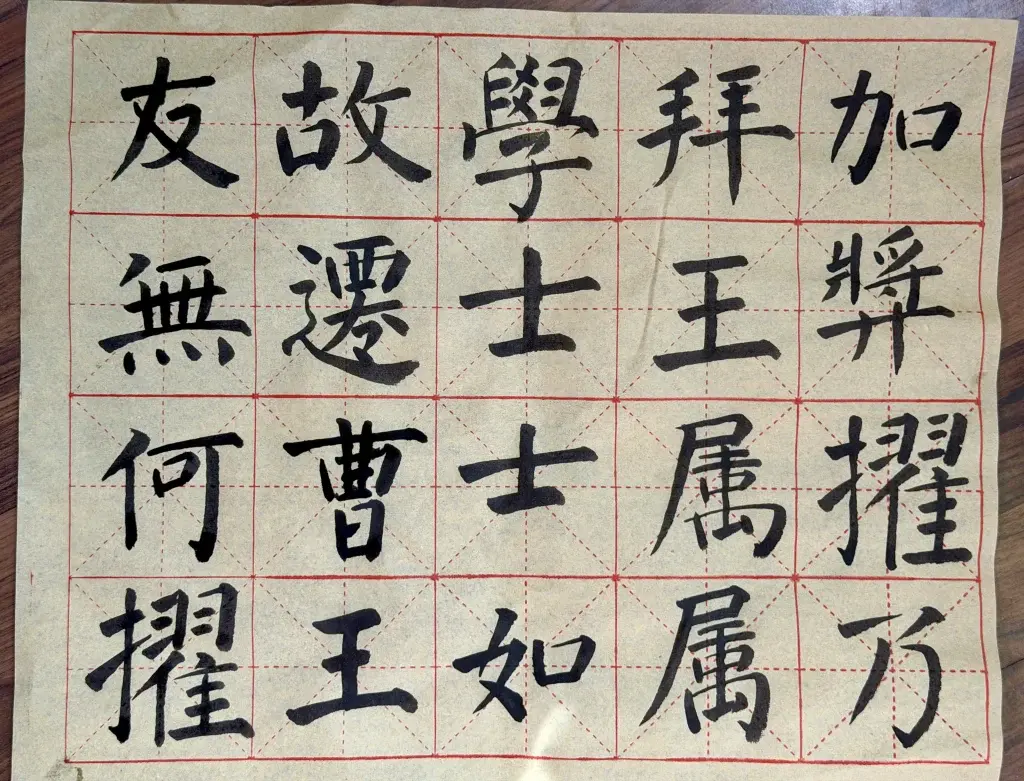 加奬擢乃
拜王属属
學士士如
故遷曹王
友無何擢